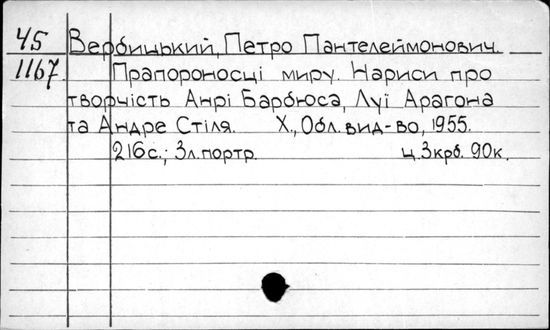 45 Вербицький, Петро Пантелеймонович.
1167. Прапороносці миру. Нариси про
творчість Анрі Барбюса, Луї Арагона
та Андре Стіля. Х., Обл. вид-во, 1955.
216 с.; 3 л. портр. ц. 3 крб. 90 к.